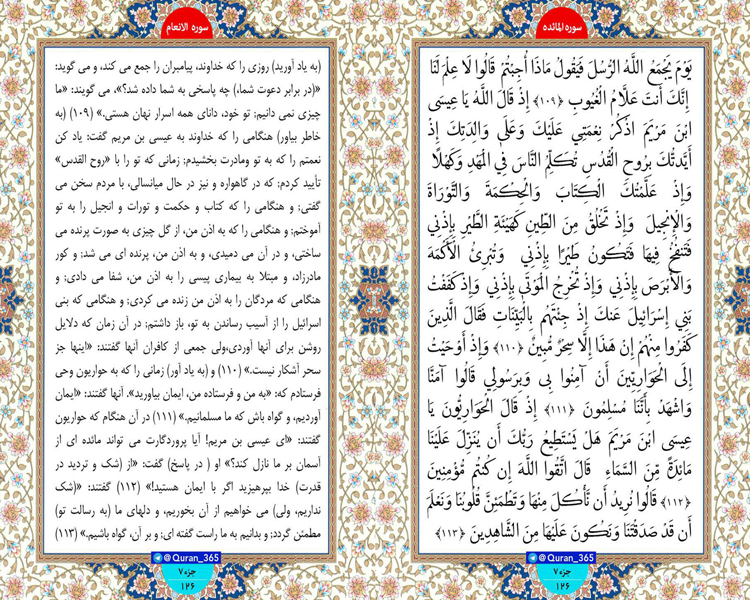 سوره المائده
يَوْمَ يَجْمَعُ اللَّهُ الرُّسُلَ فَيَقُولُ مَاذَا أُجِبْتُمْ قَالُوا لَا عِلْمَ لَنَا
إِنَّكَ أَنتَ عَلَّامُ الْغُيُوبِ ﴿١٠٩﴾ إِذْ قَالَ اللَّهُ يَا عِيسَى
ابْنَ مَرْيَمَ اذْكُرْ نِعْمَتِي عَلَيْكَ وَعَلَى وَالِدَتِكَ إِذْ
أَيَّدتُّكَ بِرُوحِ الْقُدُسِ تُكَلِّمُ النَّاسَ فِي الْمَهْدِ وَكَهْلًا
وَإِذْ عَلَّمْتُكَ الْكِتَابَ وَالْحِكْمَةَ وَالتَّوْرَاةَ
وَالْإِنجِيلَ وَإِذْ تَخْلُقُ مِنَ الطِّينِ كَهَيْئَةِ الطَّيْرِ بِإِذْنِي
فَتَنفُخُ فِيهَا فَتَكُونُ طَيْرًا بِإِذْنِي وَتُبْرِئُ الْأَكْمَهَ
وَالْأَبْرَصَ بِإِذْنِي وَإِذْ تُخْرِجُ الْمَوْتَى بِإِذْنِي وَإِذْ كَفَفْتُ
بَنِي إِسْرَائِيلَ عَنكَ إِذْ جِئْتَهُم بِالْبَيِّنَاتِ فَقَالَ الَّذِينَ
كَفَرُوا مِنْهُمْ إِنْ هَذَا إِلَّا سِحْرٌ مُّبِينٌ ﴿١١٠﴾ وَإِذْ أَوْحَيْتُ
إِلَى الْحَوَارِيِّينَ أَنْ آمِنُوا بِي وَبِرَسُولِي قَالُوا آمَنَّا
وَاشْهَدْ بِأَنَّنَا مُسْلِمُونَ ﴿١١١﴾ إِذْ قَالَ الْحَوَارِيُّونَ يَا
عِيسَى ابْنَ مَرْيَمَ هَلْ يَسْتَطِيعُ رَبُّكَ أَن يُنَزِّلَ عَلَيْنَا
مَائِدَةً مِّنَ السَّمَاءِ قَالَ اتَّقُوا اللَّهَ إِن كُنتُم مُّؤْمِنِينَ
﴿١١٢﴾ قَالُوا نُرِيدُ أَن نَّأْكُلَ مِنْهَا وَتَطْمَئِنَّ قُلُوبُنَا وَنَعْلَمَ
أَن قَدْ صَدَقْتَنَا وَنَكُونَ عَلَيْهَا مِنَ الشَّاهِدِينَ ﴿١١٣﴾
@Quran_365
جزء ۷
۱۲۶
سوره الانعام
(به یاد آورید) روزی را که خداوند، پیامبران را جمع می کند، و می گوید:
«(در برابر دعوت شما،) چه پاسخی به شما داده شد؟»، می گویند: «ما
چیزی نمی دانیم; تو خود، دانای همه اسرار نهان هستی.» (۱۰۹) (به
خاطر بیاور) هنگامی را که خداوند به عیسی بن مریم گفت: یاد کن
نعمتم را که به تو ومادرت بخشیدم; زمانی که تو را با «روح القدس»
تأیید کردم; که در گاهواره و نیز در حال میانسالی، با مردم سخن می
گفتی; و هنگامی را که کتاب و حکمت و تورات و انجیل را به تو
آموختم; و هنگامی را که به اذن من، از گل چیزی به صورت پرنده می
ساختی، و در آن می دمیدی، و به اذن من، پرنده ای می شد; و کور
مادرزاد، و مبتلا به بیماری پیسی را به اذن من، شفا می دادی; و
هنگامی که مردگان را به اذن من زنده می کردی; و هنگامی که بنی
اسرائیل را از آسیب رساندن به تو، باز داشتم; در آن زمان که دلایل
روشن برای آنها آوردی،ولی جمعی از کافران آنها گفتند: «اینها جز
سحر آشکار نیست.» (۱۱۰) و (به یاد آور) زمانی را که به حواریون وحی
فرستادم که: «به من و فرستاده من، ایمان بیاورید». آنها گفتند: «ایمان
آوردیم، و گواه باش که ما مسلمانیم.» (۱۱۱) در آن هنگام که حواریون
گفتند: «ای عیسی بن مریم! آیا پروردگارت می تواند مائده ای از
آسمان بر ما نازل کند؟» او ( در پاسخ) گفت: «از (شک و تردید در
قدرت) خدا بپرهیزید اگر با ایمان هستید!» (۱۱۲) گفتند: «(شک
نداریم، ولی) می خواهیم از آن بخوریم، و دلهای ما (به رسالت تو)
مطمئن گردد; و بدانیم به ما راست گفته ای; و بر آن، گواه باشیم.» (۱۱۳)
@Quran_365
جزء ۷
۱۲۶